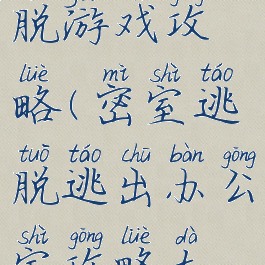 脱游戏攻
lüè mì shì táo
略(密室逃
tuō táo chū bàn gōng
脱逃出办公
shì gōng lüè dà
室攻略大